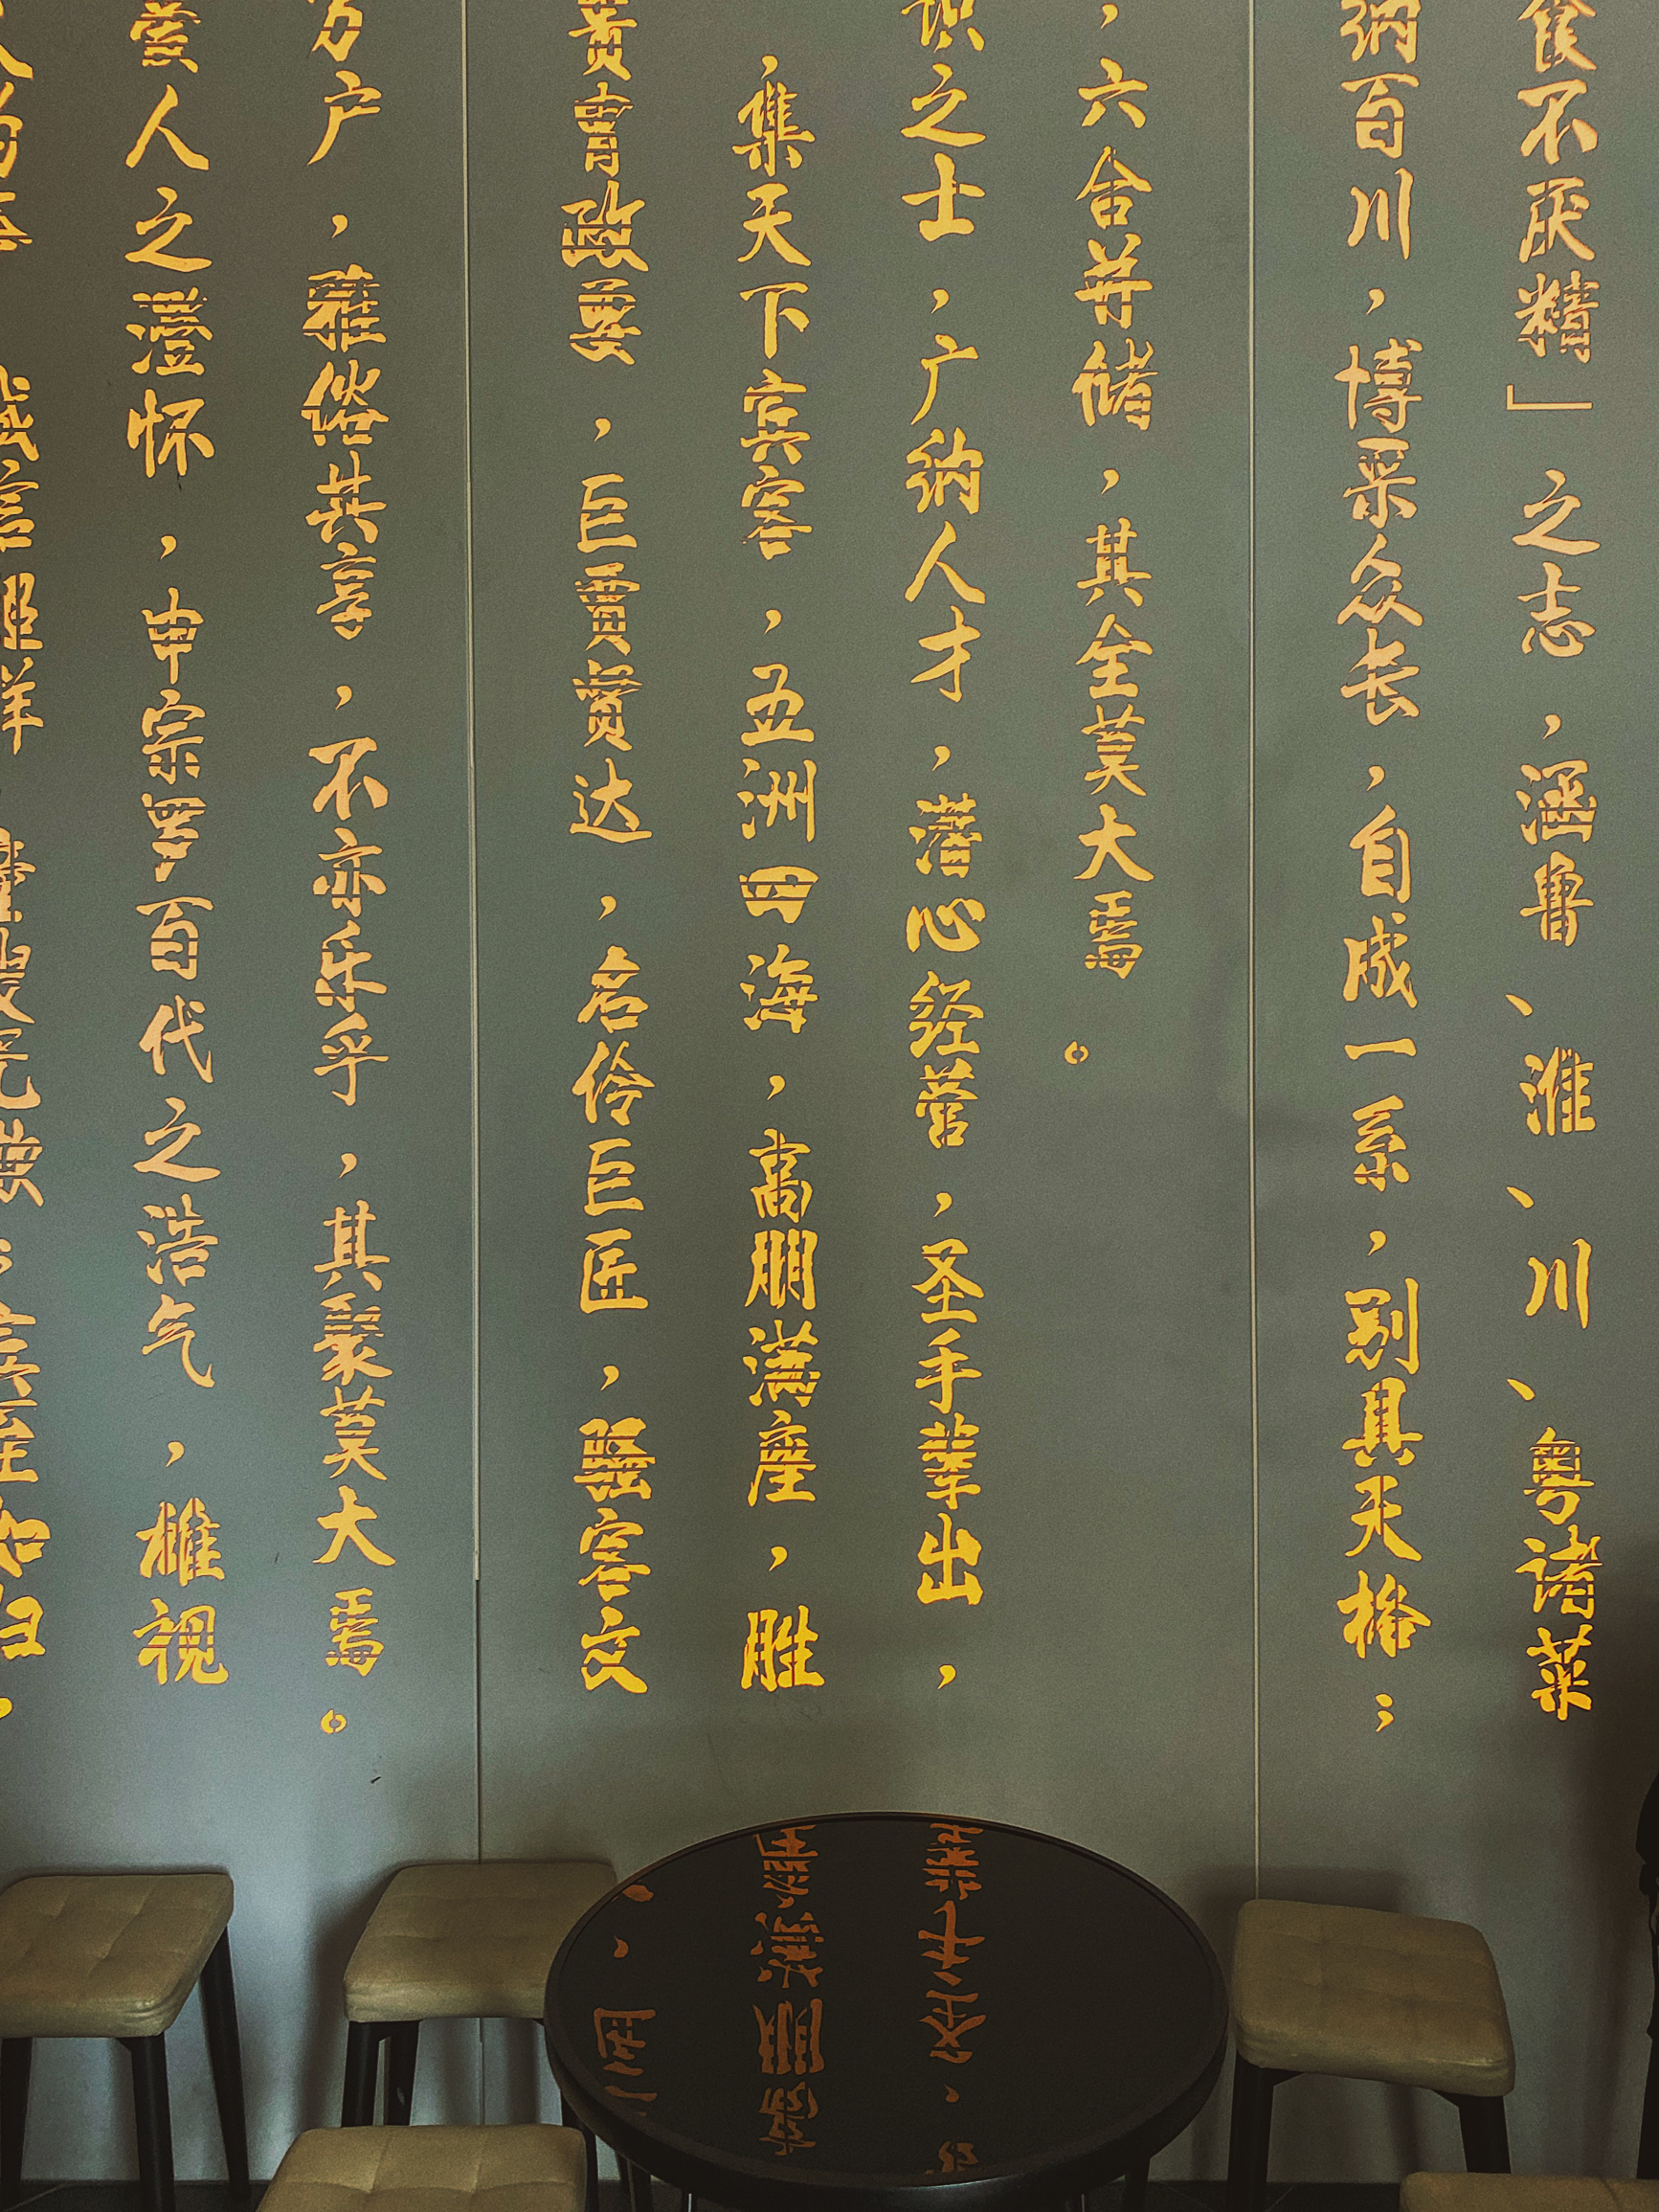 食不厌精」之志，涵鲁、淮、川、粤诸菜
纳百川，博采众长，自成一系，别具天格；
，六合并储，其全莫大焉。
识之士，广纳人才，潜心经营，圣手辈出，
，集天下宾客，五洲四海，高朋满座，胜
贵胄政要，巨贾贤达，名伶巨匠，骚客文
万户，雅俗共享，不亦乐乎，其聚莫大焉。
人之澄怀，申宗罗百代之浩气，雄视